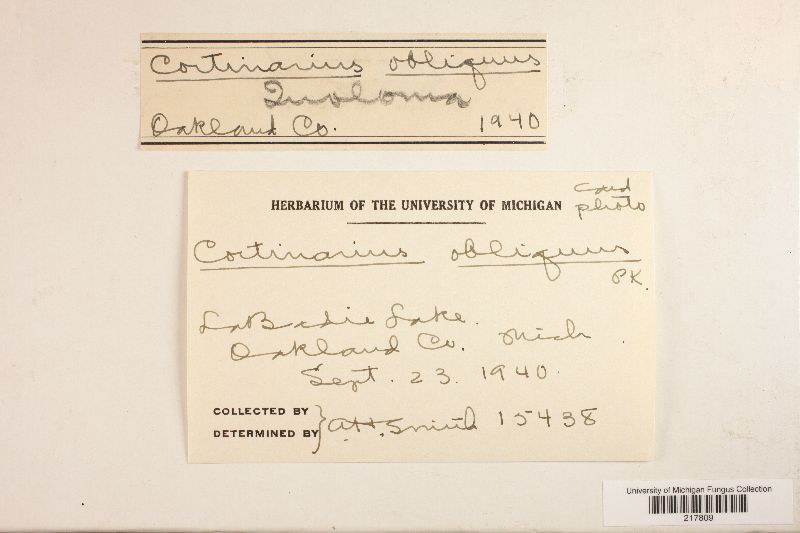 Cortinarius obliquus
Inoloma
Oakland Co. 1940
HERBARIUM OF THE UNIVERSITY OF MICHIGAN
photo
Cortinarius obliquus
PK.
LaBadie Lake.
Oakland Co. Mich.
Sept. 23. 1940.
COLLECTED BY
DETERMINED BY
A.H. Smith 15438
University of Michigan Fungus Collection
217809